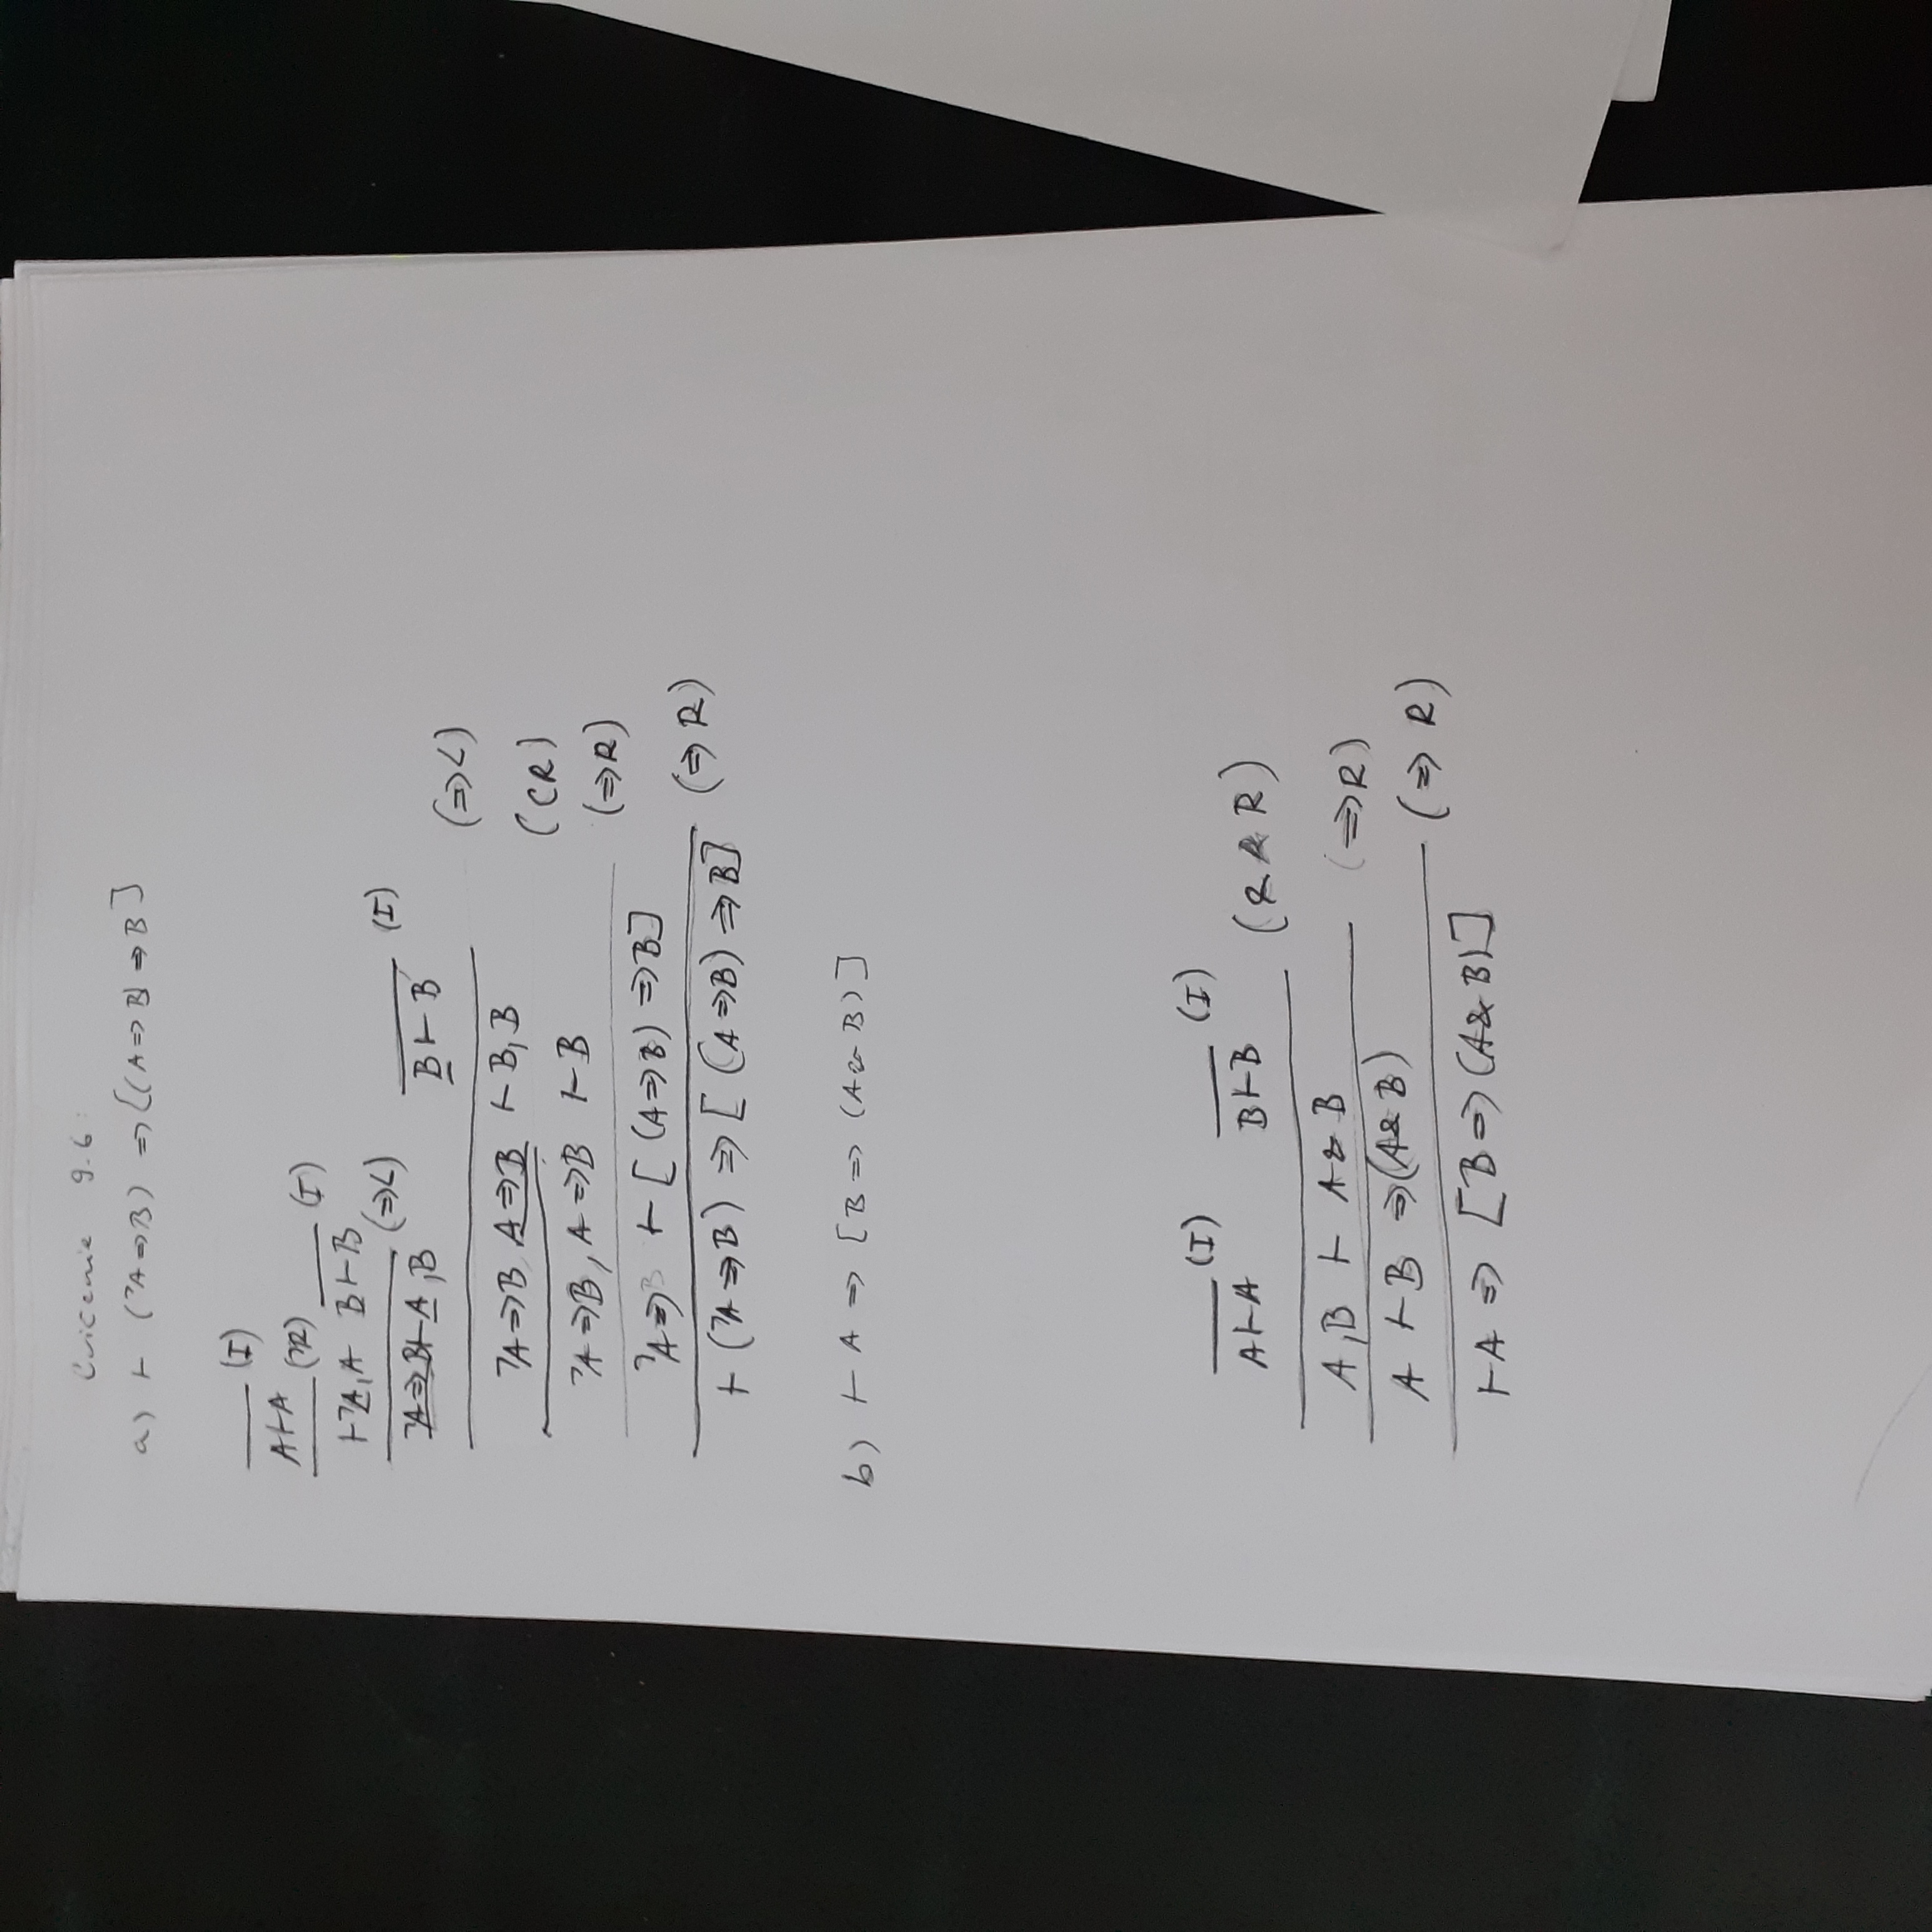 Cvičenie 9.6:
a) ⊢ (?A⇒B) ⇒[(A⇒B)⇒B]
(I)
A⊢A (?R) (I)
⊢?A,A B⊢B (⇒L) (I)
?A⇒B⊢A,B B⊢B
(⇒L)
?A⇒B, A⇒B ⊢B,B
(CR)
?A⇒B, A⇒B ⊢B
(⇒R)
?A⇒B ⊢[(A⇒B)⇒B]
(⇒R)
⊢(?A⇒B) ⇒[(A⇒B)⇒B]
b) ⊢ A ⇒ [B⇒(A&B)]
(I) (I)
A⊢A B⊢B
(&R)
A,B ⊢ A&B
(⇒R)
A ⊢B ⇒(A&B)
(⇒R)
⊢A ⇒ [B⇒(A&B)]